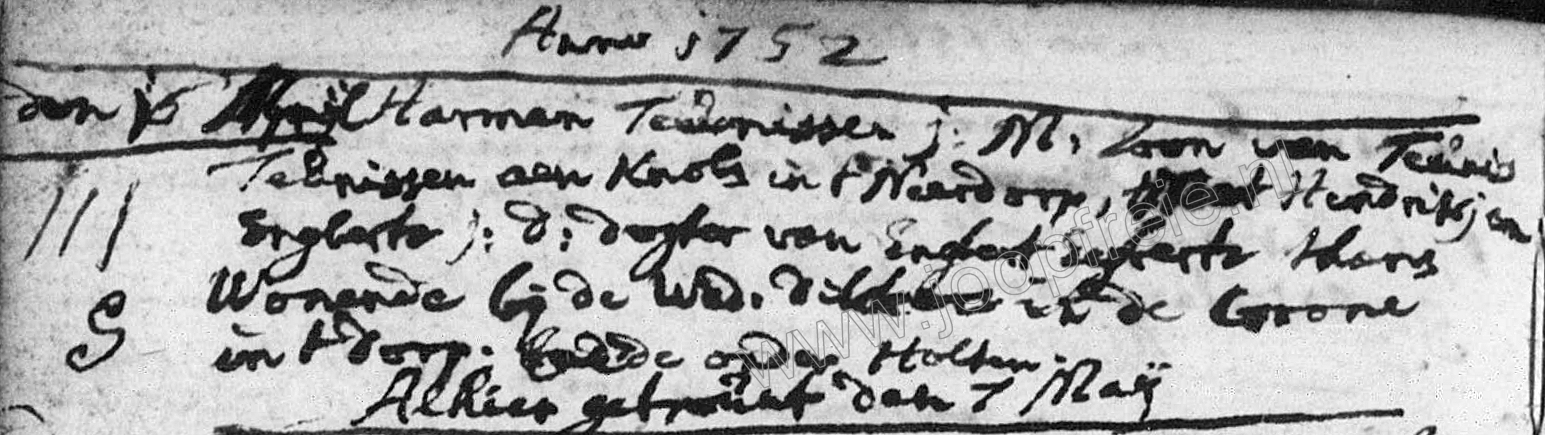 Anno 1752
den 16 April Harman Teunissen j: M: Zoon van Teunis
Teunissen aen Knols in t Neerdorp, met Hendrikjen
Engberts j: d: dogter van Engbert thans
///
Wonende bij de Wed: in de Croone
S
in t dorp. beide onder Holten.
Alhier getrouet den 7 Maij
www.joopfreie.nl